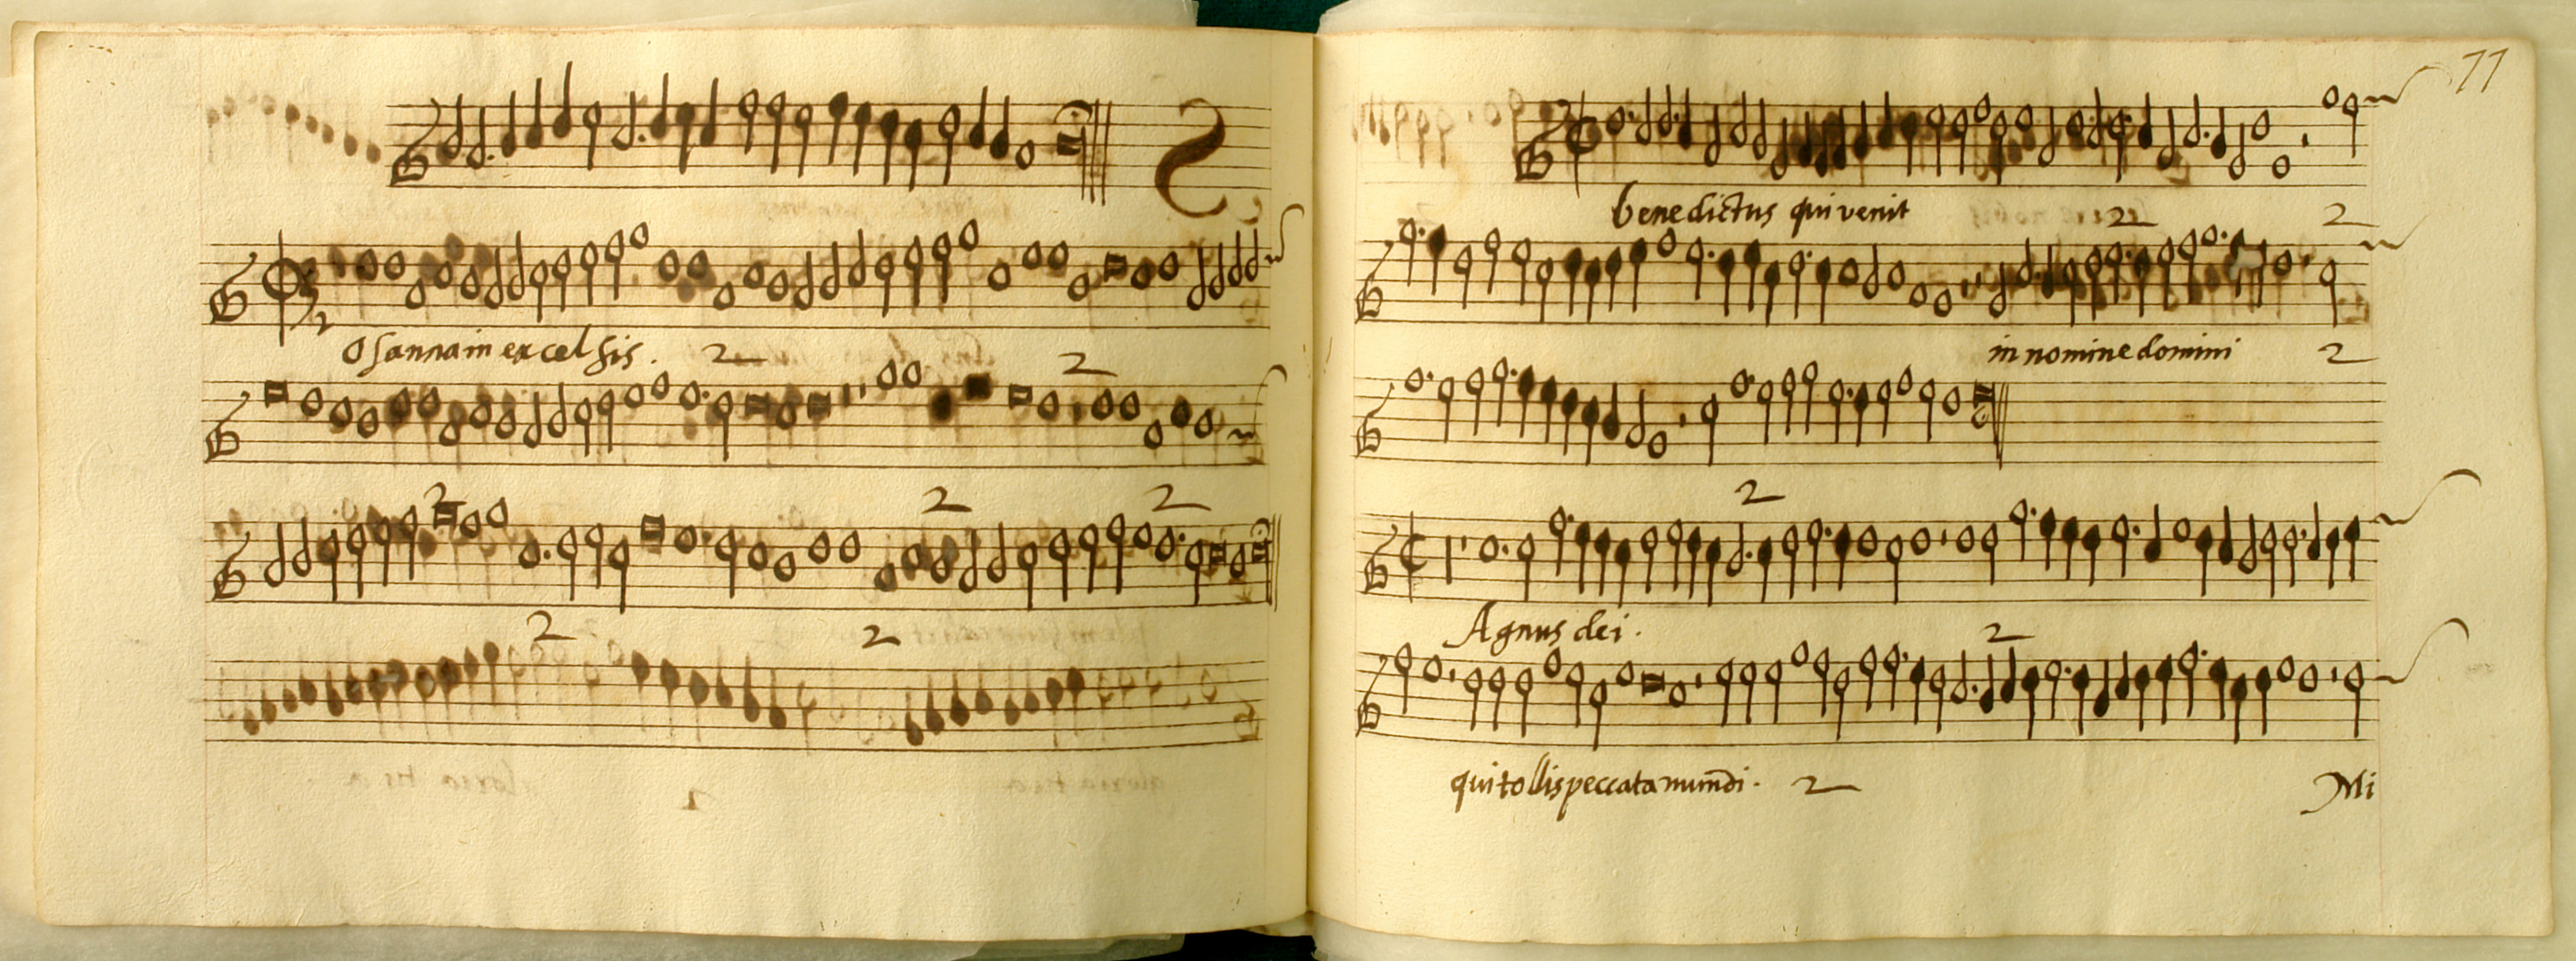 Osanna in excelsis . 2
2
2 2 2
2 2
11
benedictus qui venit 2 2
in nomine domini 2
2
Agnus dei . 2
qui tollis peccata mun̄di . 2 Mi